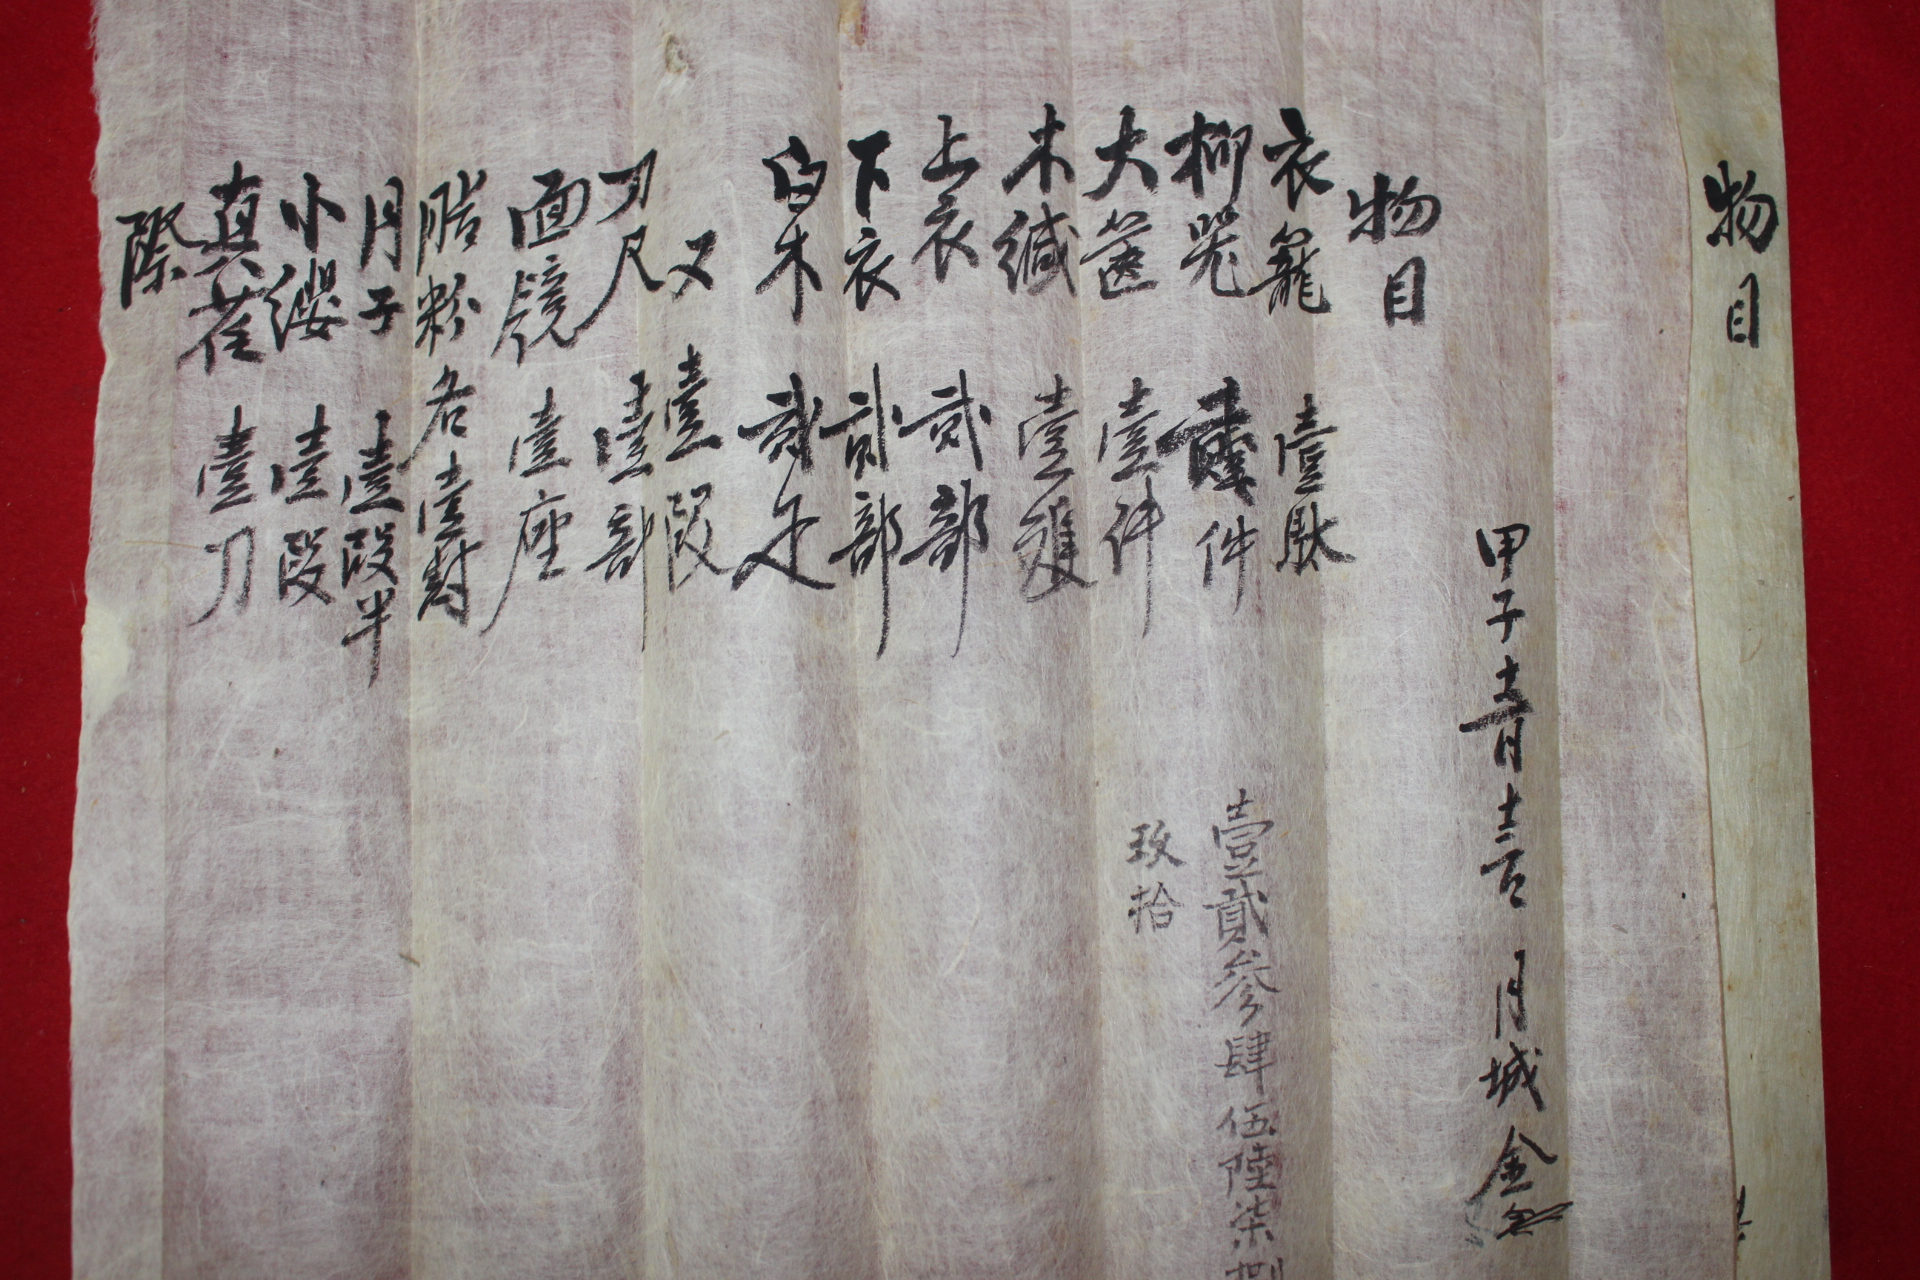 物目
甲子十一月十二日 月城金
物目
衣籠 壹駄
柳器 貳件
大篋 壹件
木緘 壹雙
上衣 貳部
下衣 貳部
白木 貳疋
又 壹段
刀尺 壹部
面鏡 壹座
脂粉 各壹封
月子 壹段半
小纓 壹段
真荏 壹刀
際
壹貳參肆伍陸柒捌
玖拾